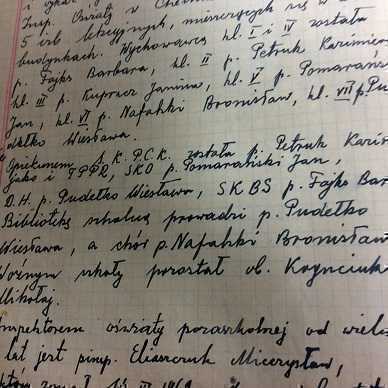 Insp. Oświaty w
5 izb lekcyjnych, mieszczących się w
budynkach. Wychowawcą kl. I i IV została
p. Fajks Barbara, kl. II p. Petruk Kazimier
kl. III p. Kupracz Janina, kl. V p. Pomarańs
Jan, kl. VI p. Nafalski Bronisław, kl. VII p. Pu
dełko Wiesława.
Opiekunem S.K. P.C.K. została p. Petruk Kazi
jako i TPPR, SKO p. Pomarański Jan,
D.H. p. Pudełko Wiesława, SKBS p. Fajks Bar
Bibliotekę szkolną prowadzi p. Pudełko
Wiesława, a chór p. Nafalski Bronisław
Woźnym szkoły pozostał ob. Kaznciuk
Mikołaj.
nspektorem oświaty pozaszkolnej od wielu
lat jest p. insp. Eliaszuk Mieczysław,